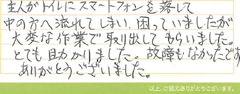 主人がトイレにスマートフォンを落して
中の方へ流れてしまい、困っていましたが
大変な作業で取り出してもらいました。
とても助かりました。故障もなかったです
ありがとうございました。
以上、ご協力ありがとうございます。